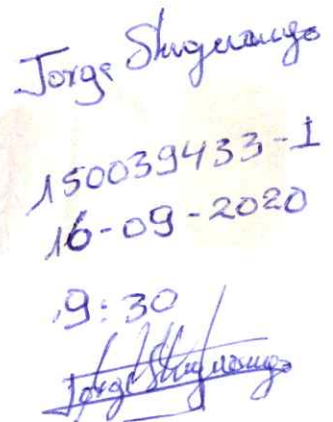 Jorge Shiguango
150039433-1
16-09-2020
9:30
Jorge Shiguango